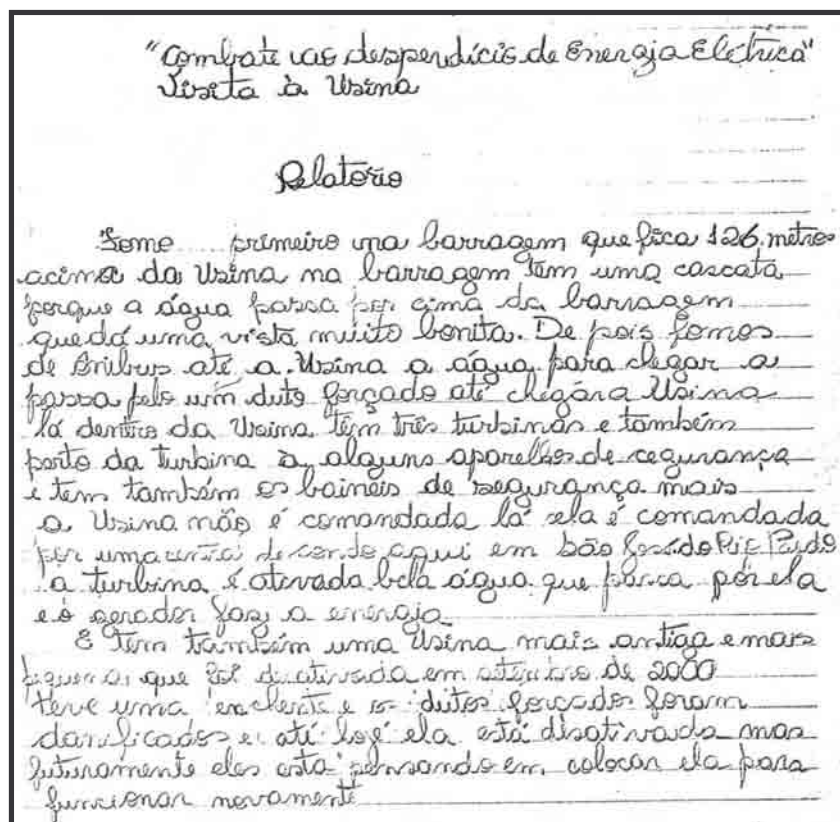 "Combate aos desperdício de Energia Elétrica"
Visita à Usina
Relatorio
Fomo primeiro na barragem que fica 126 metros
acima da Usina na barragem tem uma cascata
porque a água passa por cima da barragem
que dá uma vista muito bonita. De pois fomos
de ônibus até a Usina a água para chegar a
passa pelo um duto forçado até chegára Usina
lá dentro da Usina têm três turbinas e também
perto da turbina à alguns aparelhos de cegurança
e tem também os baineis de segurança mais
a Usina não é comandada lá ela é comandada
por uma aqui em São José do Rio Pardo
a turbina é ativada bela água que passa por ela
e o gerador faz a energia
E tem também uma Usina mais antiga e mais
pequena que foi desativada em setembro de 2000
teve uma enchente e os dutos forçados foram
danificados e até hoje ela está disativada mas
futuramente eles esta pensando em colocar ela para
funcionar novamente